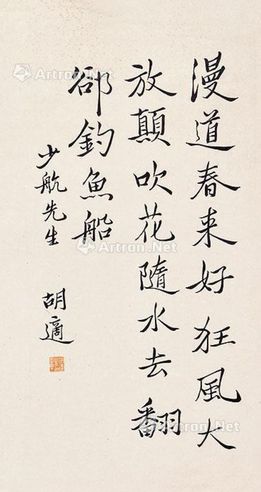 漫道春来好狂風大
放顛吹花隨水去翻
郤釣魚船
少航先生
胡適
Artron.Net
Artron.Net
Artron.Net